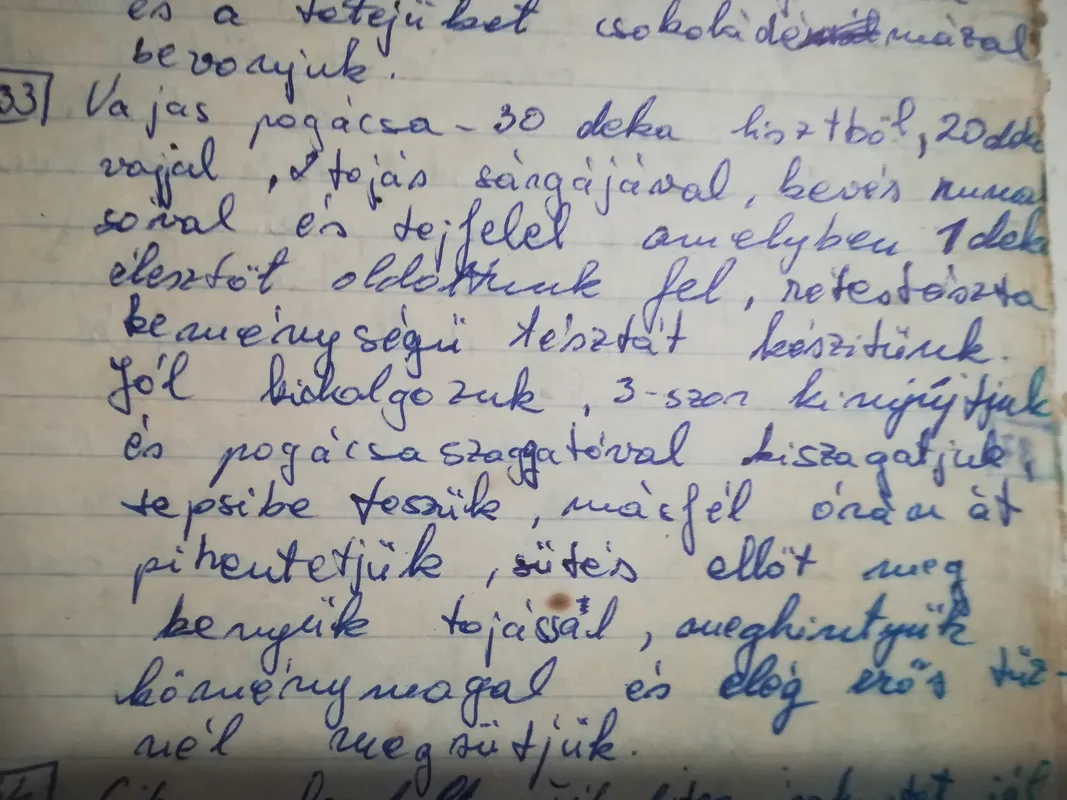 és a tetejüket csokoládémázal
bevonjuk.
33 Vajas pogácsa - 30 deka lisztből, 20 deka
vajjal, 2 tojás sárgájával, kevés
sóval és tejfelel amelyben 1 deka
élesztőt oldottunk fel, rétestészta
keménységű tésztát készitünk.
Jól kidolgozuk, 3-szor kinyújtjuk
és pogácsaszaggatóval kiszagatjuk,
tepsibe teszük, másfél órán át
pihentetjük, sütés ellőt meg
kenyük tojással, meghintyük
köménymagal és elég erős tűz-
nél megsütjük.